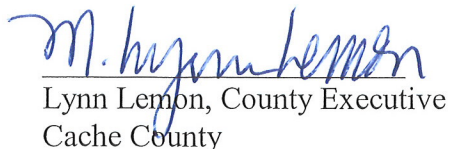 M. Lynn Lemon
Lynn Lemon, County Executive
Cache County